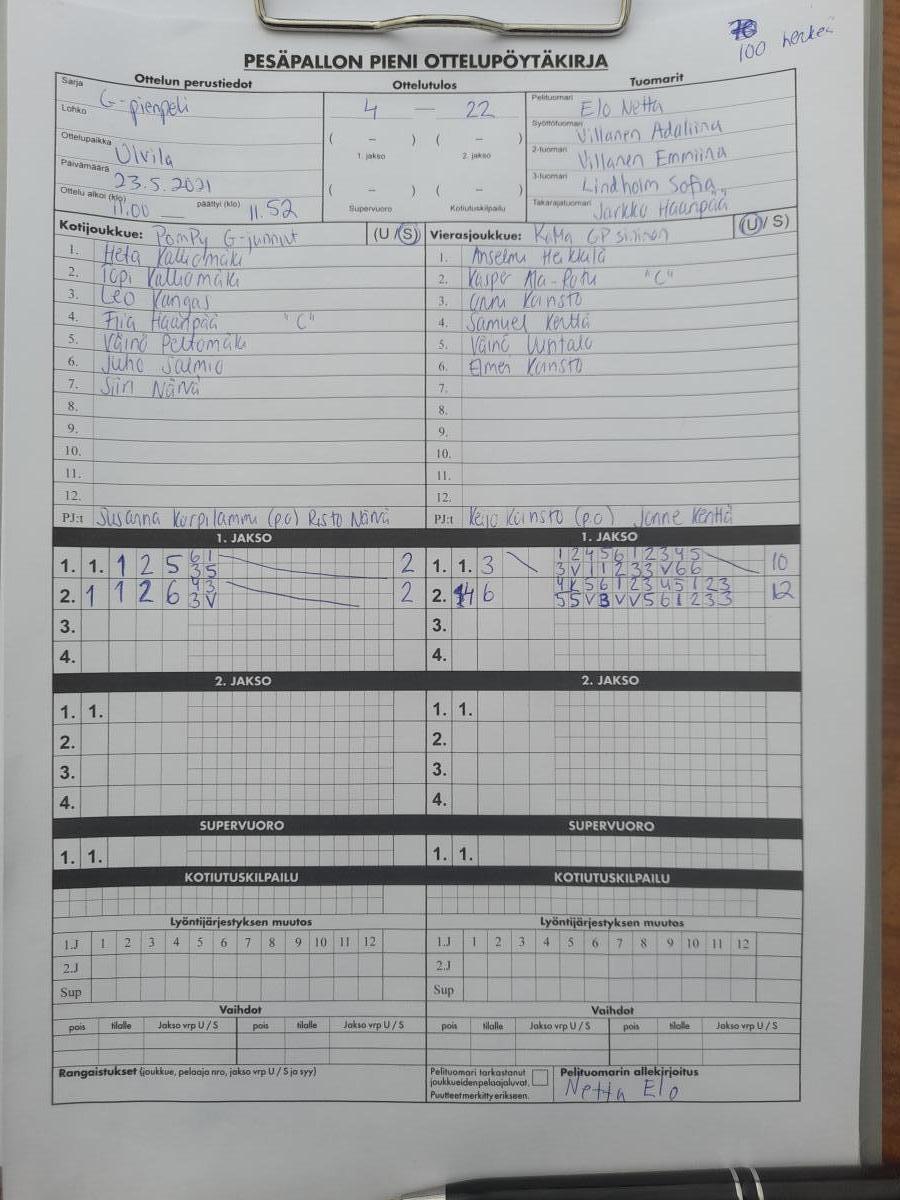 100 herkeä
PESÄPALLON PIENI OTTELUPÖYTÄKIRJA
Ottelun perustiedot
Sarja
G-pienpeli
Lohko
Ottelupaikka Ulvila
Päivämäärä 23.5.2021
Ottelu alkoi (klo) 11.00 päättyi (klo) 11.52
Ottelutulos
4 — 22
( – ) ( – )
1. jakso 2. jakso
( – ) ( – )
Supervuoro Kotiutuskilpailu
Tuomarit
Pelituomari Elo Netta
Syöttötuomari Villanen Adaliina
2-tuomari Villanen Emmiina
3-tuomari Lindholm Sofia
Takarajatuomari Jarkko Haanpää
Kotijoukkue: PomPy G-junnut (U/S)
1. Heta Kalliomäki
2. Topi Kalliomäki
3. Leo Kangas
4. Fiia Haanpää "C"
5. Väinö Peltomäki
6. Juho Salmio
7. Siiri Närvä
8.
9.
10.
11.
12.
PJ:t Susanna Korpilammi (p.o) Risto Närvä
Vierasjoukkue: KaMa GP sininen (U/S)
1. Anselmi Heikkilä
2. Kasper Ala-Potu "C"
3. Onni Kainsto
4. Samuel Kenttä
5. Väinö Uuntalo
6. Elmer Kainsto
7.
8.
9.
10.
11.
12.
PJ:t Keijo Kainsto (p.o) Janne Kenttä
1. JAKSO
1. 1. 1 2 5 6 1 2
3 5
2. 1 1 2 6 4 3 2
3 V
3.
4.
1. JAKSO
1. 1. 3 1 2 4 5 6 1 2 3 4 5 10
3 V 1 1 2 3 3 V 6 6
2. 4 6 4 5 6 1 2 3 4 5 1 2 3 12
5 5 V 3 V V 5 6 1 2 3 3
3.
4.
2. JAKSO
1. 1.
2.
3.
4.
2. JAKSO
1. 1.
2.
3.
4.
SUPERVUORO
1. 1.
SUPERVUORO
1. 1.
KOTIUTUSKILPAILU
KOTIUTUSKILPAILU
Lyöntijärjestyksen muutos
1.J 1 2 3 4 5 6 7 8 9 10 11 12
2.J
Sup
Lyöntijärjestyksen muutos
1.J 1 2 3 4 5 6 7 8 9 10 11 12
2.J
Sup
Vaihdot
pois tilalle Jakso vrp U / S pois tilalle Jakso vrp U / S
Vaihdot
pois tilalle Jakso vrp U / S pois tilalle Jakso vrp U / S
Rangaistukset (joukkue, pelaaja nro, jakso vrp U / S ja syy)
Pelituomari tarkastanut
joukkueiden pelaajaluvat.
Puutteet merkitty erikseen.
Pelituomarin allekirjoitus
Netta Elo